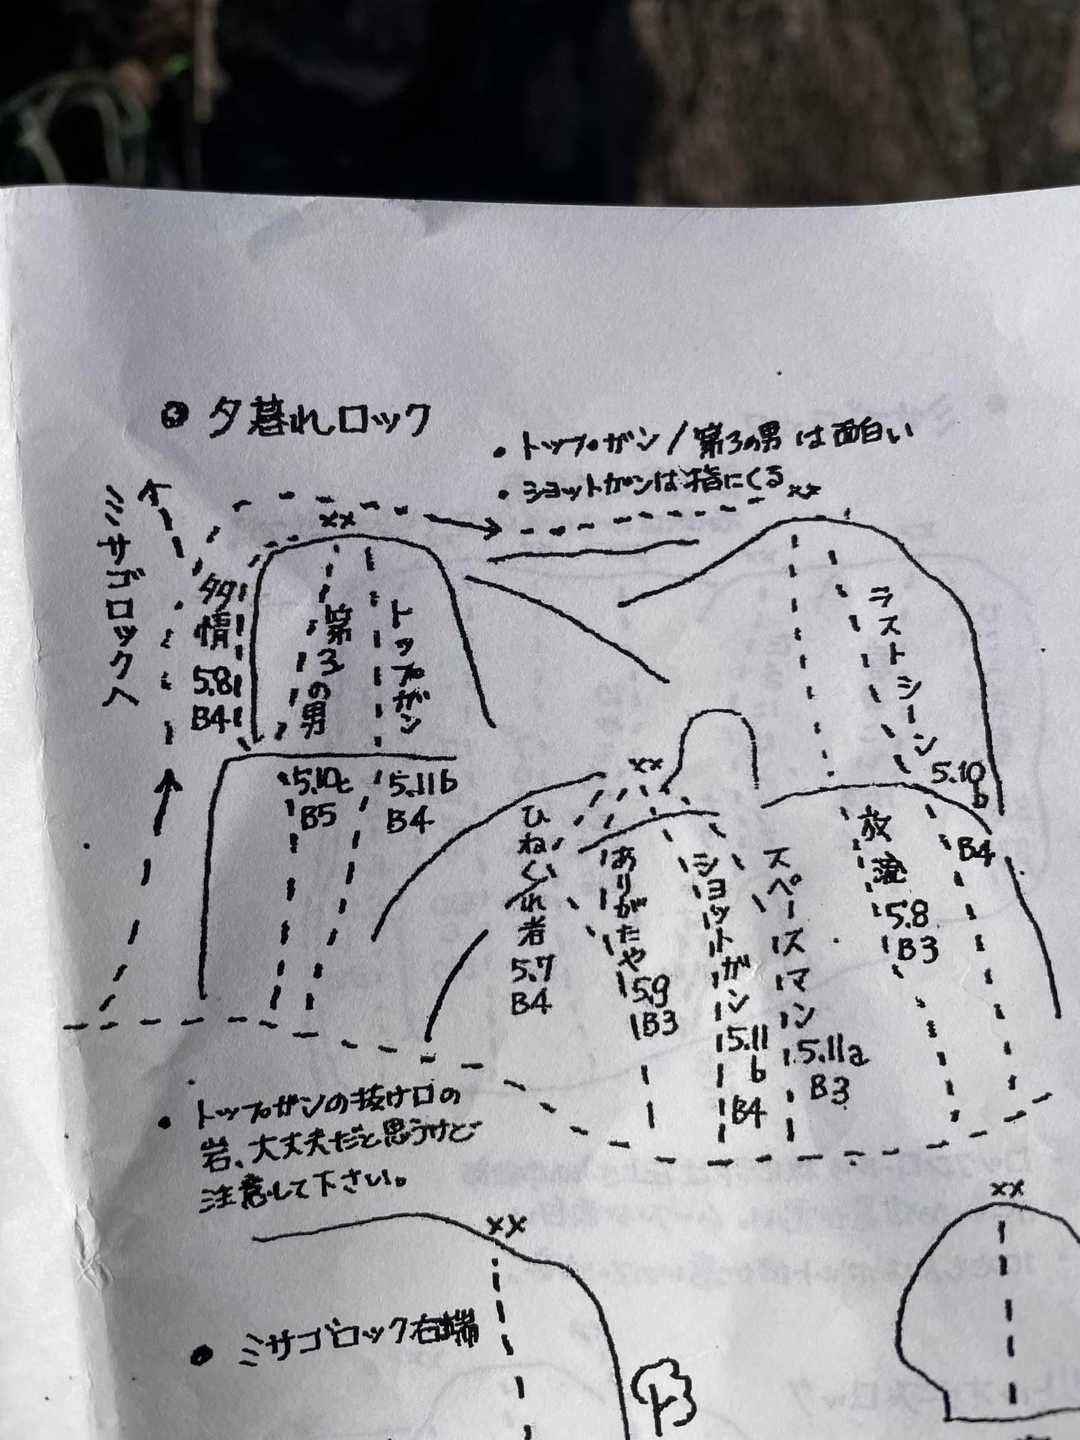 夕暮れロック
・トップガン/第3の男は面白い
・ショットガンは指にくる
ミサゴロックへ
多情
5.8
B4
第3の男
5.10c
B5
トップガン
5.11b
B4
ひねくれ者
5.7
B4
ありがたや
5.9
B3
ショットガン
5.11
b
B4
スペースマン
5.11a
B3
放流
5.8
B3
ラストシーン
5.10
b
B4
xx
xx
xx
・トップガンの抜け口の
岩、大丈夫だと思うけど
注意して下さい。
xx
xx
● ミサゴロック右端